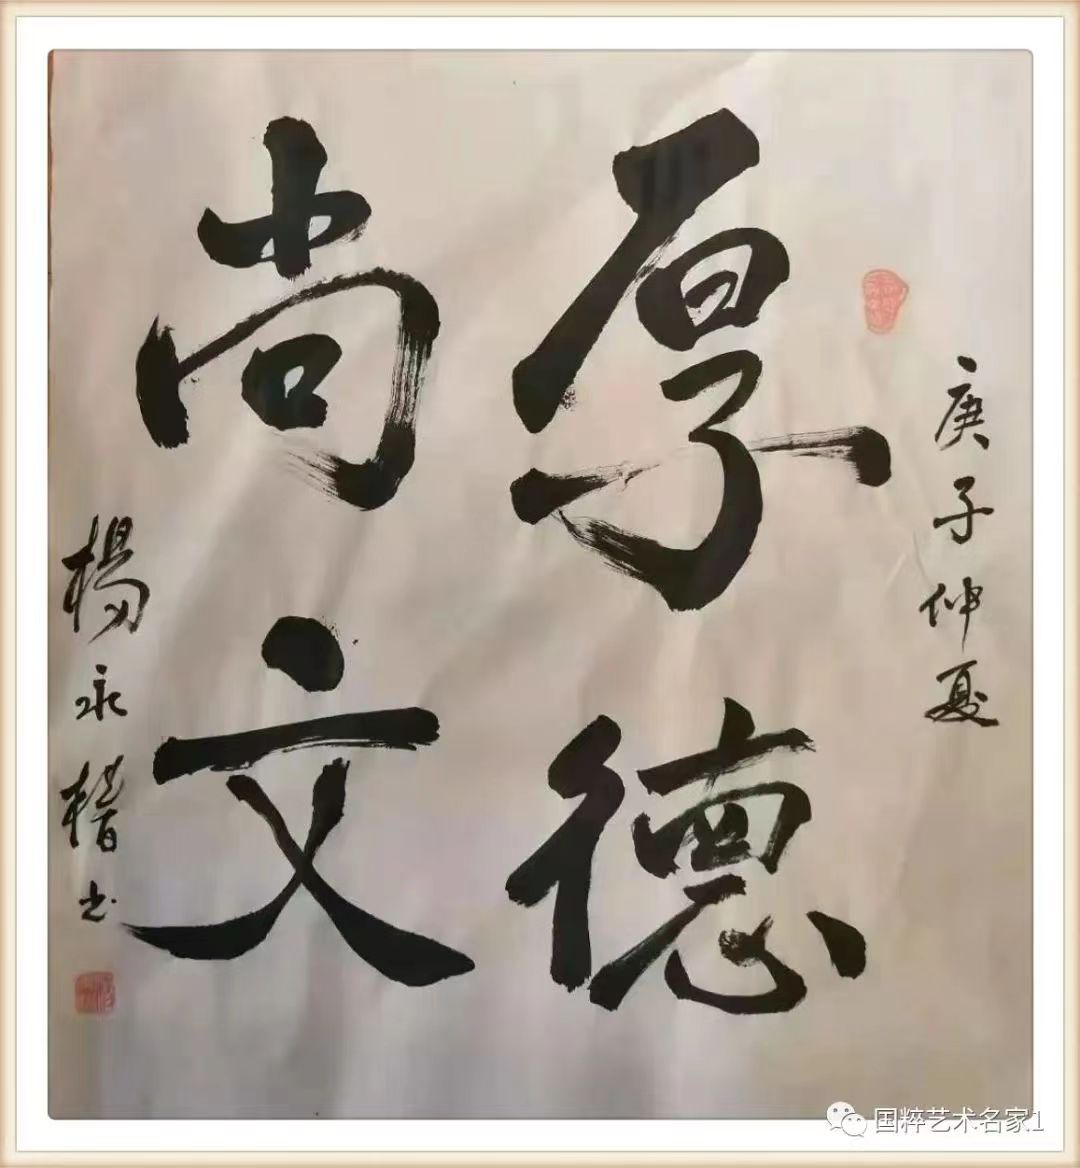 庚子仲夏
厚德
尚文
楊永楷书
国粹艺术名家1